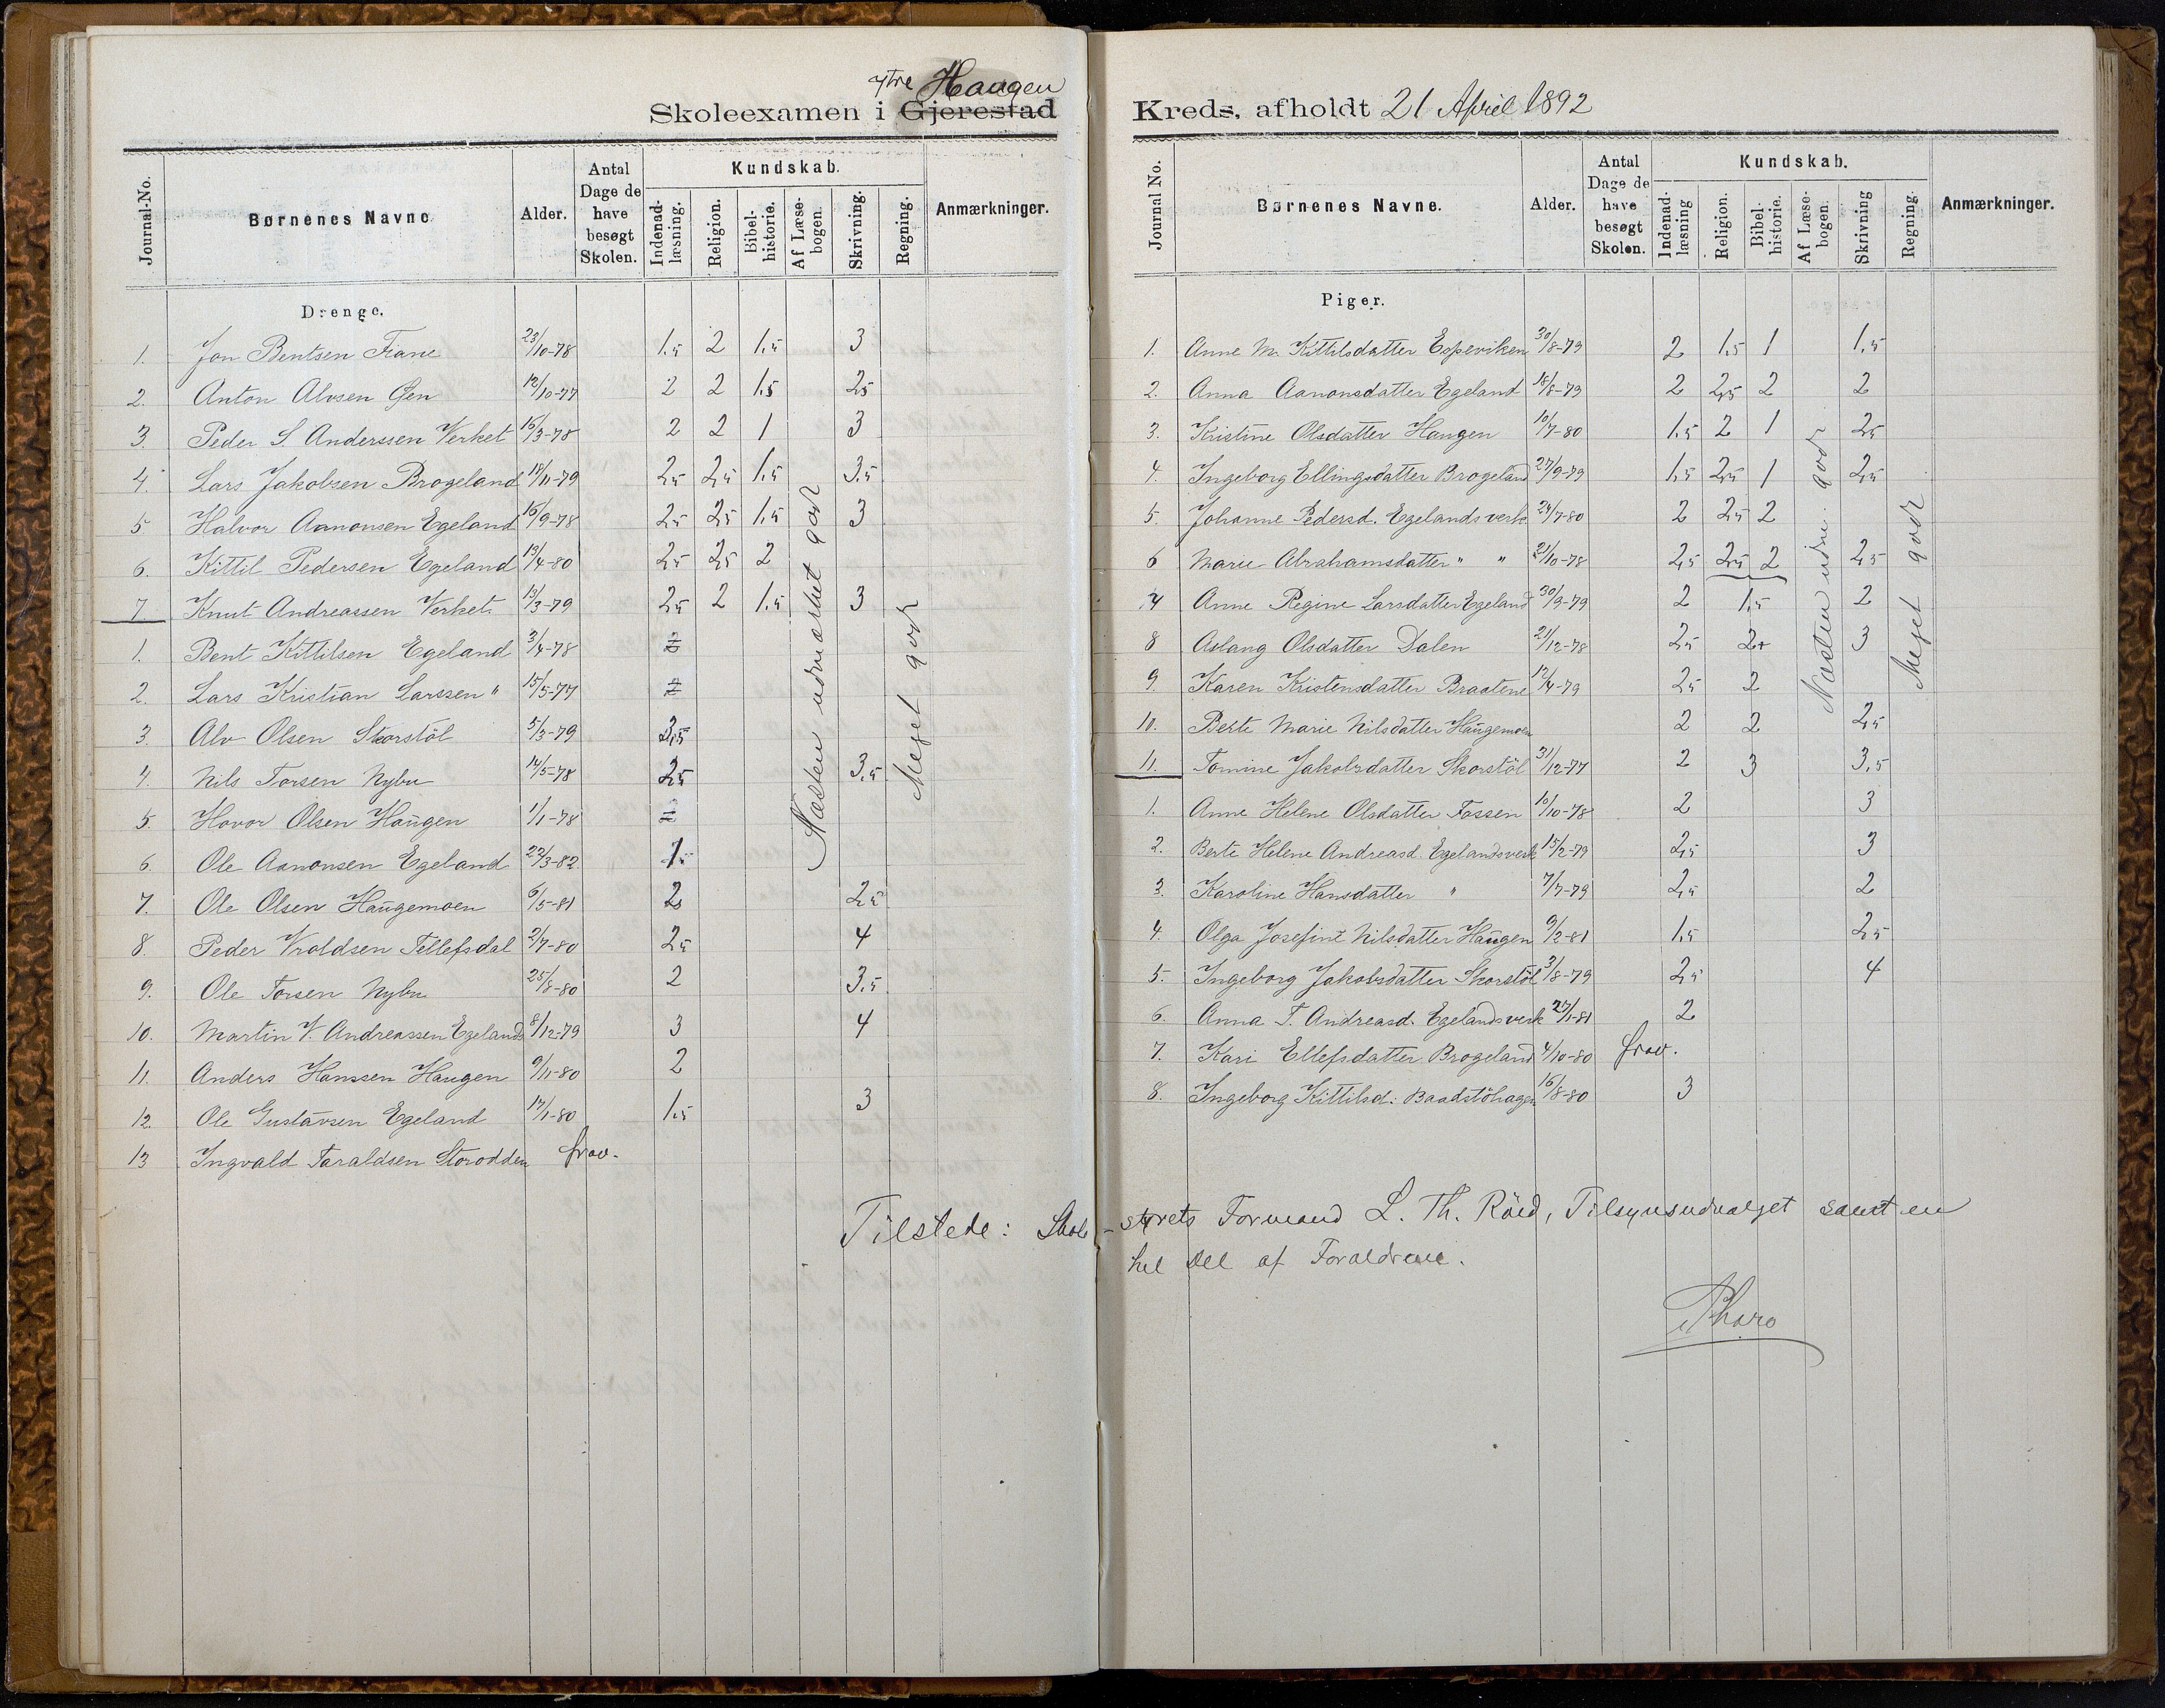 ytre Haugen
Skoleexamen i Gjerestad
Journal-No. Børnenes Navne Alder. Antal Dage de have besøgt Skolen. Kundskab. Indenad-læsning. Religion. Bibel-historie. Af Læse-bogen. Skrivning. Regning. Anmærkninger.
Drenge.
1. Jon Bentsen Fiane 23/10-78 1,5 2 1,5 3
2. Anton Alvsen Øen 12/10-77 2 2 1,5 2,5
3. Peder S. Anderssen Verket 16/3-78 2 2 1 3
4. Lars Jakobsen Brogeland 18/11-79 2,5 2,5 1,5 3,5
5. Halvor Aanonsen Egeland 16/9-78 2,5 2,5 1,5 3
6. Kittil Pedersen Egeland 13/4-80 2,5 2,5 2
7. Knut Andreassen Verket 13/3-79 2,5 2 1,5 3
1. Bent Kittilsen Egeland 3/4-78 2
2. Lars Kristian Larssen " 15/5-77 2
3. Alv Olsen Skorstöl 5/3-79 2,5
4. Nils Torsen Nybu 14/5-78 2,5 3,5
5. Havor Olsen Haugen 1/1-78 2
6. Ole Aanonsen Egeland 22/3-82 1,5
7. Ole Olsen Haugemoen 6/5-81 2 2,5
8. Peder Vroldsen Tellefsdal 2/7-80 2,5 4
9. Ole Torsen Nybu 25/8-80 2 3,5
10. Martin V. Andreassen Egelands 8/12-79 3 4
11. Anders Hanssen Haugen 9/11-80 2
12. Ole Gustavsen Egeland 17/1-80 1,5 3
13 Ingvald Taraldsen Storodden frav.
Næsten udmærket godt
Meget godt
Kreds, afholdt 21 April 1892
Journal No. Børnenes Navne. Alder. Antal Dage de have besøgt Skolen. Kundskab. Indenad-læsning Religion. Bibel-historie. Af Læse-bogen. Skrivning Regning. Anmærkninger.
Piger.
1. Anne M. Kittilsdatter Espeviken 30/8-79 2 1,5 1 1,5
2. Anna Aanonsdatter Egeland 18/8-79 2 2,5 2 2
3. Kristine Olsdatter Haugen 10/7-80 1,5 2 1 2,5
4. Ingeborg Ellingsdatter Brogeland 27/9-79 1,5 2,5 1 2,5
5. Johanne Pedersd. Egelandsverk 24/7-80 2 2,5 2
6 Marie Abrahamsdatter " " 21/10-78 2,5 2,5 2 2,5
7 Anne Regine Larsdatter Egeland 30/9-79 2 1,5 2
8 Aslaug Olsdatter Dalen 21/12-78 2,5 2+ 3
9. Karen Kristensdatter Braatene 12/4-79 2,5 2
10. Berte Marie Nilsdatter Haugemoen 2 2 2,5
11. Tomine Jakobsdatter Skorstöl 31/12-77 2 3 3,5
1. Anne Helene Olsdatter Fossen 10/10-78 2 3
2. Berte Helene Andreasd. Egelandsverk 15/2-79 2,5 3
3. Karoline Hansdatter " 7/7-79 2,5 2
4. Olga Josefine Nilsdatter Haugen 9/2-81 1,5 2,5
5. Ingeborg Jakobsdatter Skorstöl 3/8-79 2,5 4
6. Anna T. Andreasd. Egelandsverk 27/1-81 2
7. Kari Ellefsdatter Brogeland 4/10-80 frav.
8. Ingeborg Kittilsd. Baadstöhagen 16/8-80 3
Næsten udm. godt
Meget godt
Tilstede: Skole-styrets Formand L. Th. Röed, Tilsynsudvalget samt en
hel Del af Forældrene.
Tharo